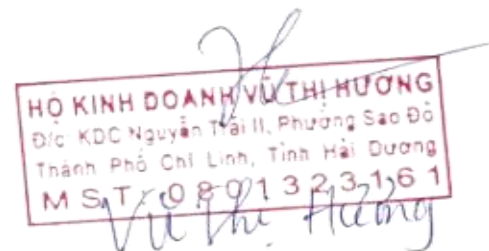 HỘ KINH DOANH VŨ THỊ HƯƠNG
Đ/c: KDC Nguyễn Trãi II, Phường Sao Đỏ
Thành Phố Chí Linh, Tỉnh Hải Dương
M S T: 0 8 0 1 3 2 3 1 6 1
Vũ Thị Hương